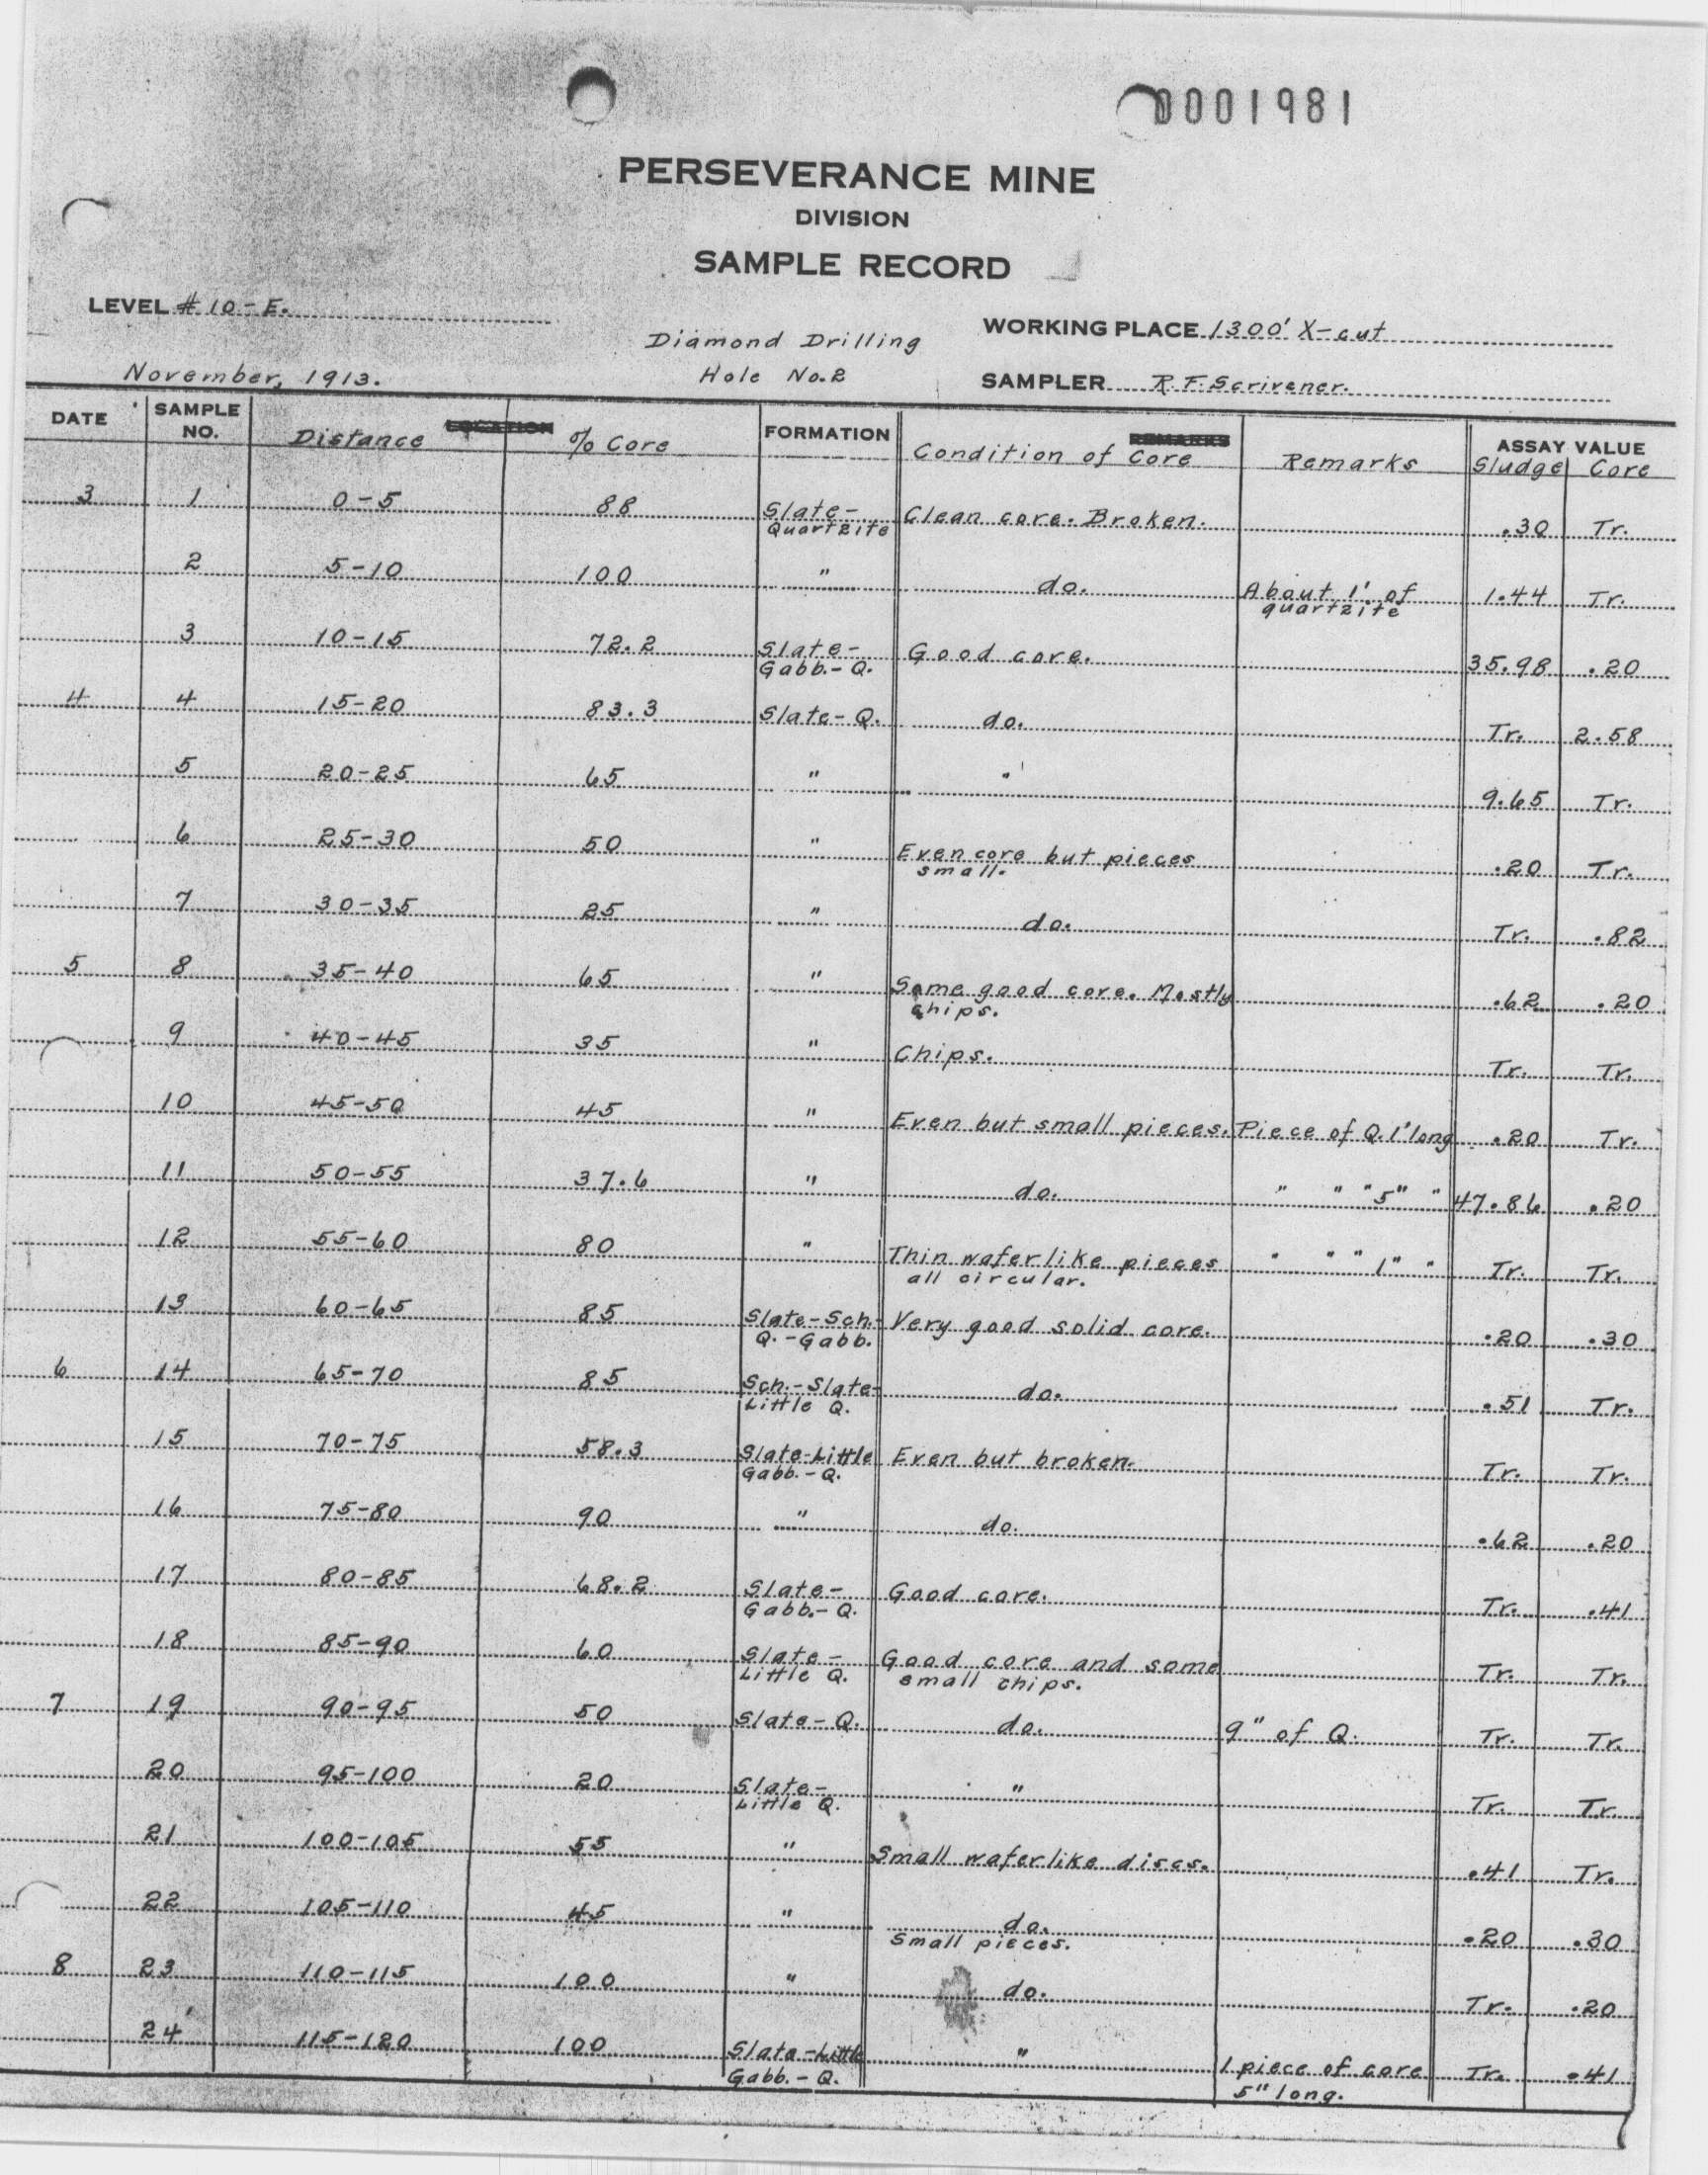 0001981
PERSEVERANCE MINE
DIVISION
SAMPLE RECORD
LEVEL # 10-E.
Diamond Drilling
WORKING PLACE 1300' X-cut
November, 1913.
Hole No.2
SAMPLER R.F. Scrivener.
DATE SAMPLE NO. Distance LOCATION % Core FORMATION Condition of Core REMARKS Remarks ASSAY VALUE Sludge Core
3 1 0-5 88 Slate- Clean core. Broken. .30 Tr.
Quartzite
2 5-10 100 " do. About 1' of 1.44 Tr.
quartzite
3 10-15 72.2 Slate- Good core. 35.98 .20
Gabb.-Q.
4 4 15-20 83.3 Slate-Q. do. Tr. 2.58
5 20-25 65 " " 9.65 Tr.
6 25-30 50 " Even core but pieces .20 Tr.
small.
7 30-35 25 " do. Tr. .82
5 8 35-40 65 " Some good core. Mostly .62 .20
chips.
9 40-45 35 " Chips. Tr. Tr.
10 45-50 45 " Even but small pieces. Piece of Q. 1' long .20 Tr.
11 50-55 37.6 " do. " " " 5" " 47.86 .20
12 55-60 80 " Thin waferlike pieces " " " 1" " Tr. Tr.
all circular.
13 60-65 85 Slate-Sch.- Very good solid core. .20 .30
Q.-Gabb.
6 14 65-70 85 Sch.-Slate- do. .51 Tr.
Little Q.
15 70-75 58.3 Slate-Little Even but broken. Tr. Tr.
Gabb.-Q.
16 75-80 90 " do. .62 .20
17 80-85 68.2 Slate- Good core. Tr. .41
Gabb.-Q.
18 85-90 60 Slate- Good core and some Tr. Tr.
Little Q. small chips.
7 19 90-95 50 Slate-Q. do. 9" of Q. Tr. Tr.
20 95-100 20 Slate- " Tr. Tr.
Little Q.
21 100-105 55 " Small waferlike discs. .41 Tr.
22 105-110 45 " do. .20 .30
Small pieces.
8 23 110-115 100 " do. Tr. .20
24 115-120 100 Slate-Little " 1 piece of core Tr. .41
Gabb.-Q. 5" long.